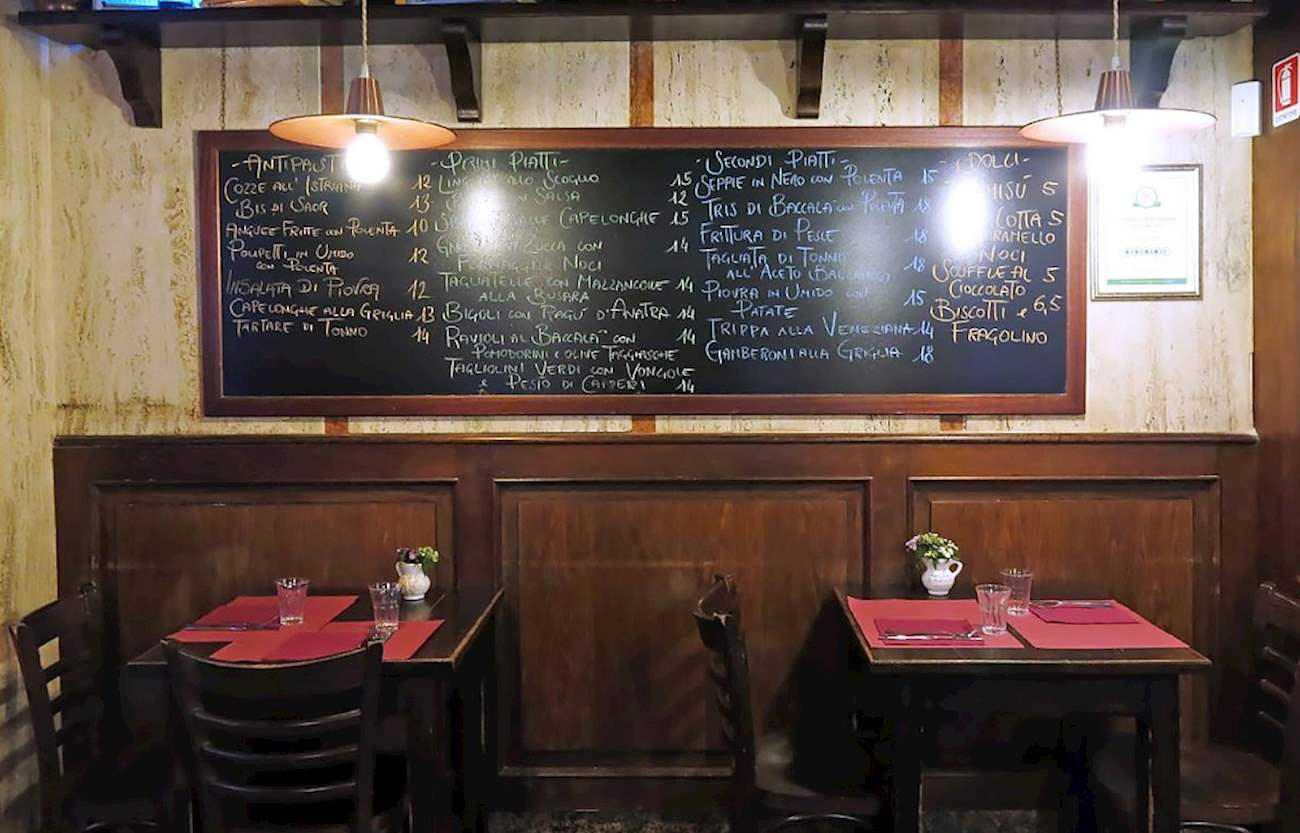 - ANTIPASTI
COZZE ALL' ISTRIANA 12
BIS DI SAOR 13
ANGUEE FRITTE CON POLENTA 10
POLIPETTI IN UMIDO 12
CON POLENTA
INSALATA DI PIOVRA 12
CAPELONGHE ALLA GRIGLIA 13
TARTARE DI TONNO 14
- PRIMI PIATTI -
ALLO SCOGLIO 15
IN SALSA 12
CAPELONGHE 15
ZUCCA CON 14
NOCI
TAGLIATELLE CON MAZZANCOLLE 14
ALLA BUSARA
BIGOLI CON RAGÚ D'ANATRA 14
RAVIOLI AL BACCALA' CON 14
POMODORINI E OLIVE TAGGIASCHE
TAGLIOLINI VERDI CON VONGOLE
E PESTO DI CAPPERI 14
- SECONDI PIATTI -
SEPPIE IN NERO CON POLENTA 15
TRIS DI BACCALA' CON POLENTA 18
FRITTURA DI PESCE 18
TAGLIATA DI TONNO 18
ALL'ACETO BALSAMICO
PIOVRA IN UMIDO CON 15
PATATE
TRIPPA ALLA VENEZIANA 14
GAMBERONI ALLA GRIGLIA 18
DOLCI -
5
5
NOCI
SOUFFLE AL 5
CIOCCOLATO
BISCOTTI E 6,5
FRAGOLINO